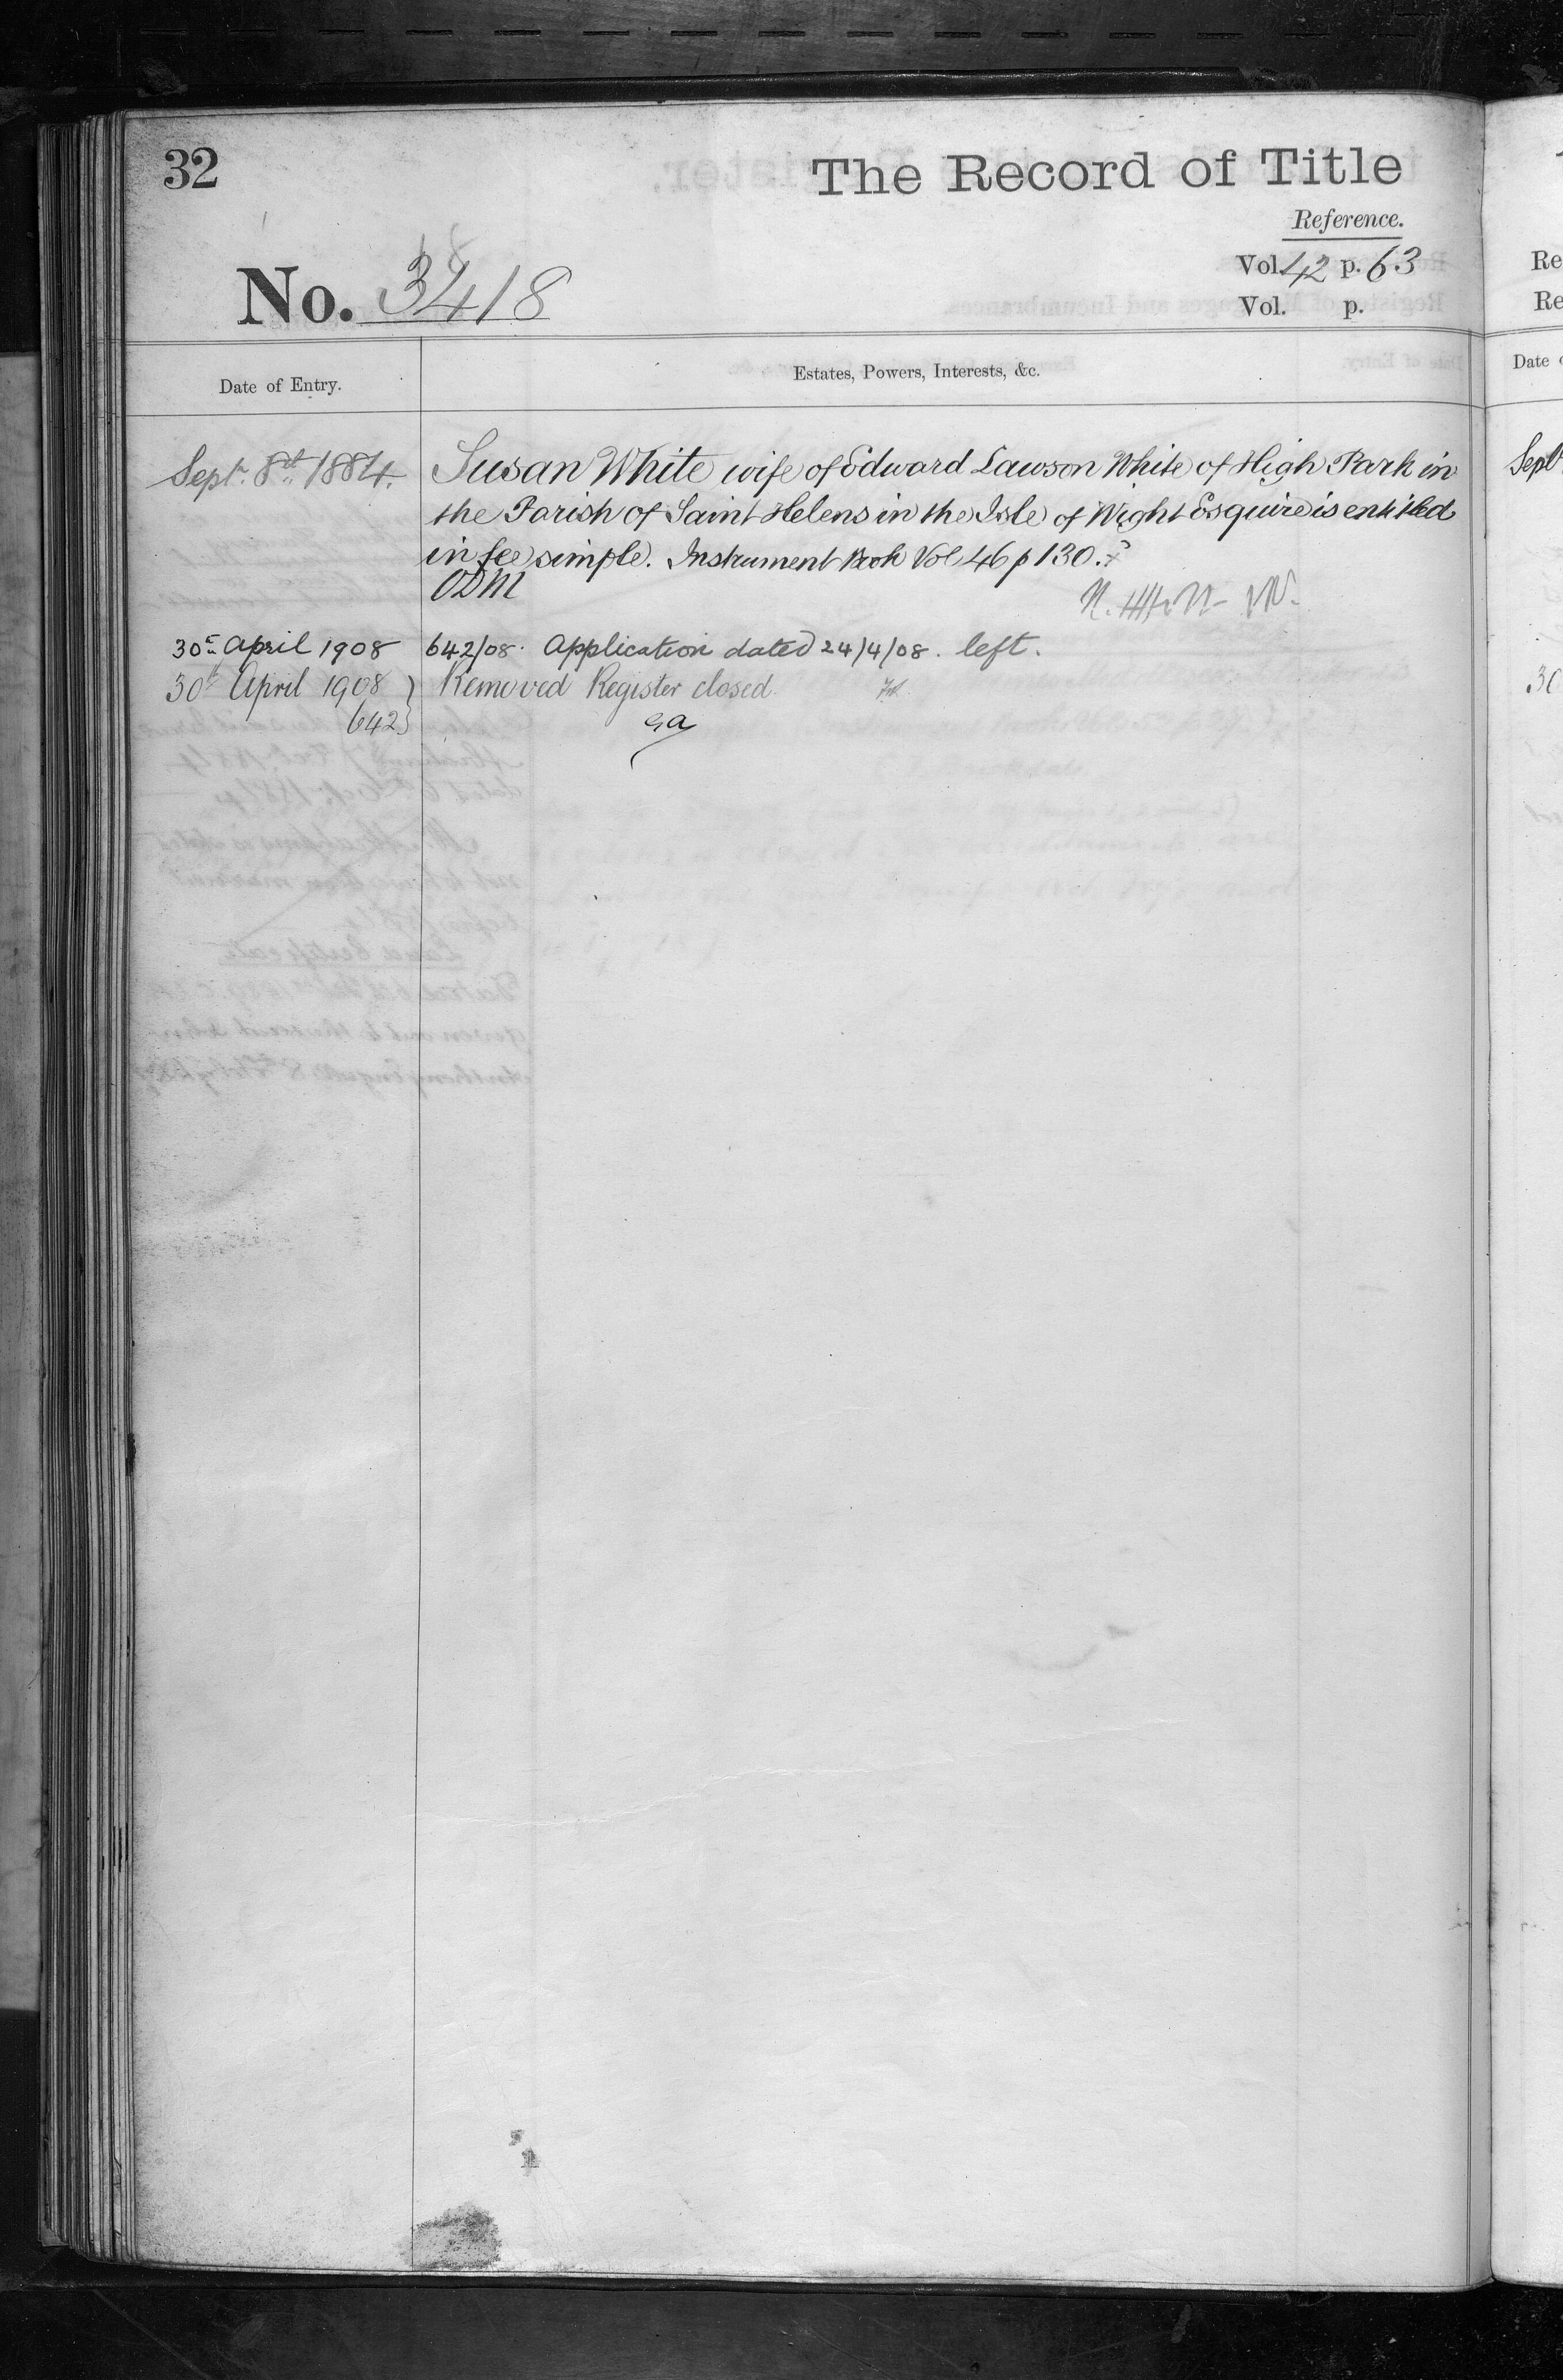 32
The Record of Title
Reference.
Vol. 42 p. 63
Vol. p.
No. 3418
Date of Entry.
Estates, Powers, Interests, &c.
Septr. 8th 1884.
Susan White wife of Edward Lawson White of High Park in
the Parish of Saint Helens in the Isle of Wight Esquire is entitled
in fee simple. Instrument Book Vol 46 p 130.
ODM
30th April 1908
642/08. Application dated 24/4/08. left.
30th April 1908 }
Removed Register closed
642 }
Re
Re
Date
Sept
30